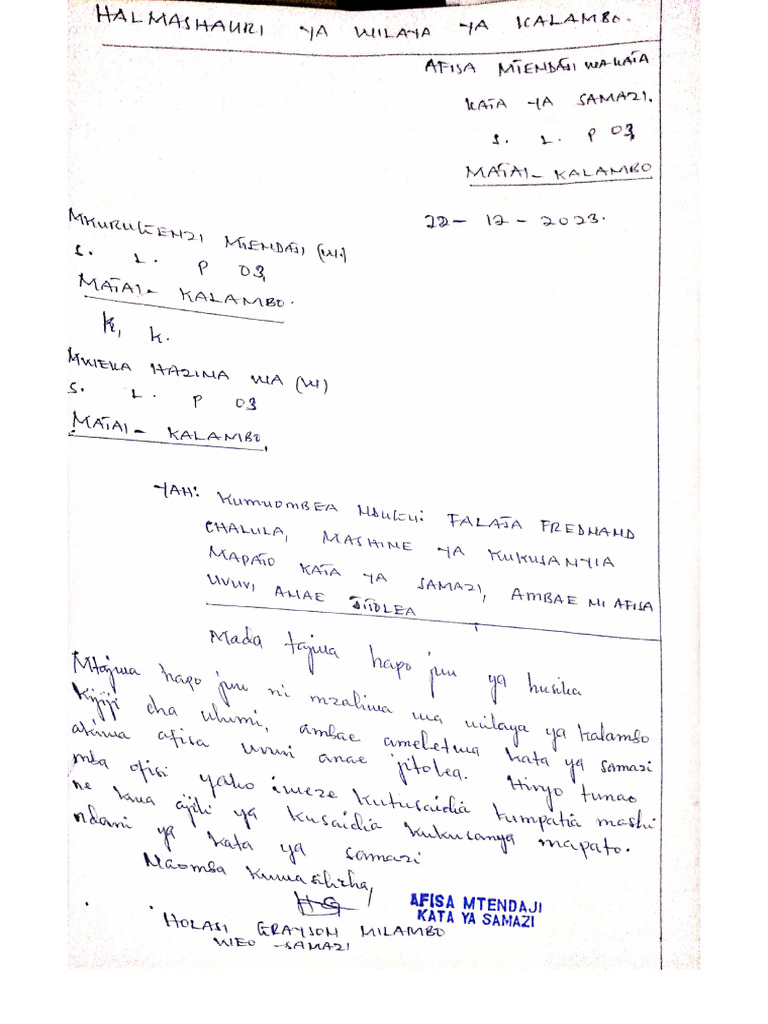 HALMASHAURI YA WILAYA YA KALAMBO.
AFISA MTENDAJI WA KATA
KATA YA SAMAZI.
S. L. P 03,
MATAI - KALAMBO
22 - 12 - 2023.
MKURUGENZI MTENDAJI (W.)
S. L. P 03,
MATAI - KALAMBO.
K, K.
MWEKA HAZINA WA (W)
S. L. P 03
MATAI - KALAMBO,
YAH: KUMUOMBEA NDUGU: FALAJA FREDNAND
CHALULA, MASHINE YA KUKUSANYIA
MAPATO KATA YA SAMAZI, AMBAE NI AFISA
UVUVI, ANAE JITOLEA
Mada tajwa hapo juu ya husika
Mtajwa hapo juu ni mzaliwa wa wilaya ya Kalambo
Kijiji cha ulumi, ambae ameletwa kata ya samazi
akiwa afisa uvuvi anae jitolea. Hivyo tunao
mba ofisi yako imeze kutusaidia kumpatia mashi
ne kwa ajili ya kusaidia kukusanya mapato.
ndani ya kata ya samazi
Naomba kuwasilisha,
HG
AFISA MTENDAJI
KATA YA SAMAZI
HOLASI GRAYSON MILAMBO
WEO - SAMAZI